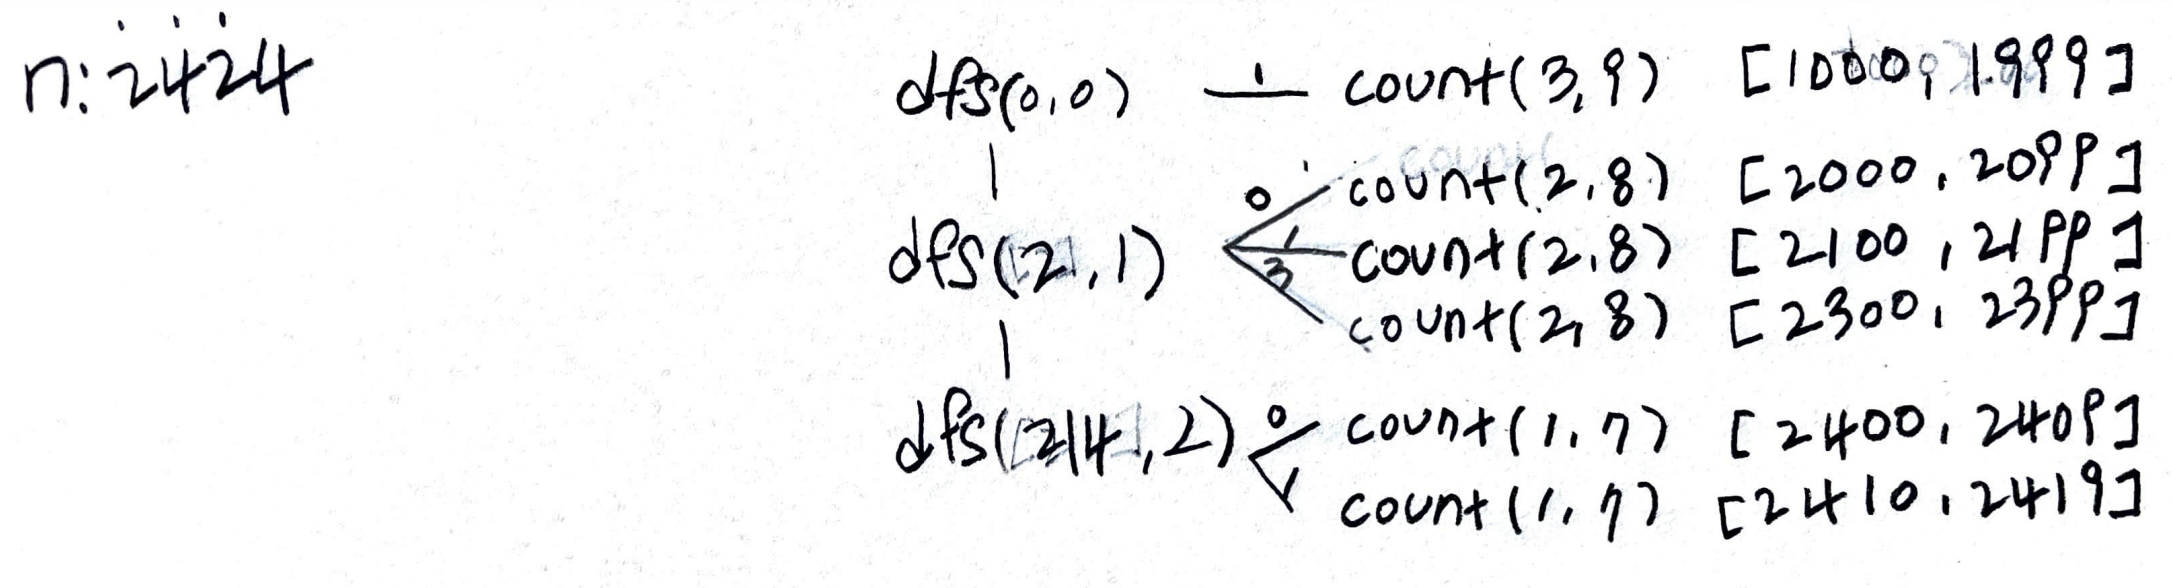 n: 2424
dfs(0,0) 1 count(3,9) [1000, 1999]
0 count(2,8) [2000, 2099]
dfs(2,1) 1 count(2,8) [2100, 2199]
3 count(2,8) [2300, 2399]
dfs(24,2) 0 count(1,7) [2400, 2409]
1 count(1,7) [2410, 2419]